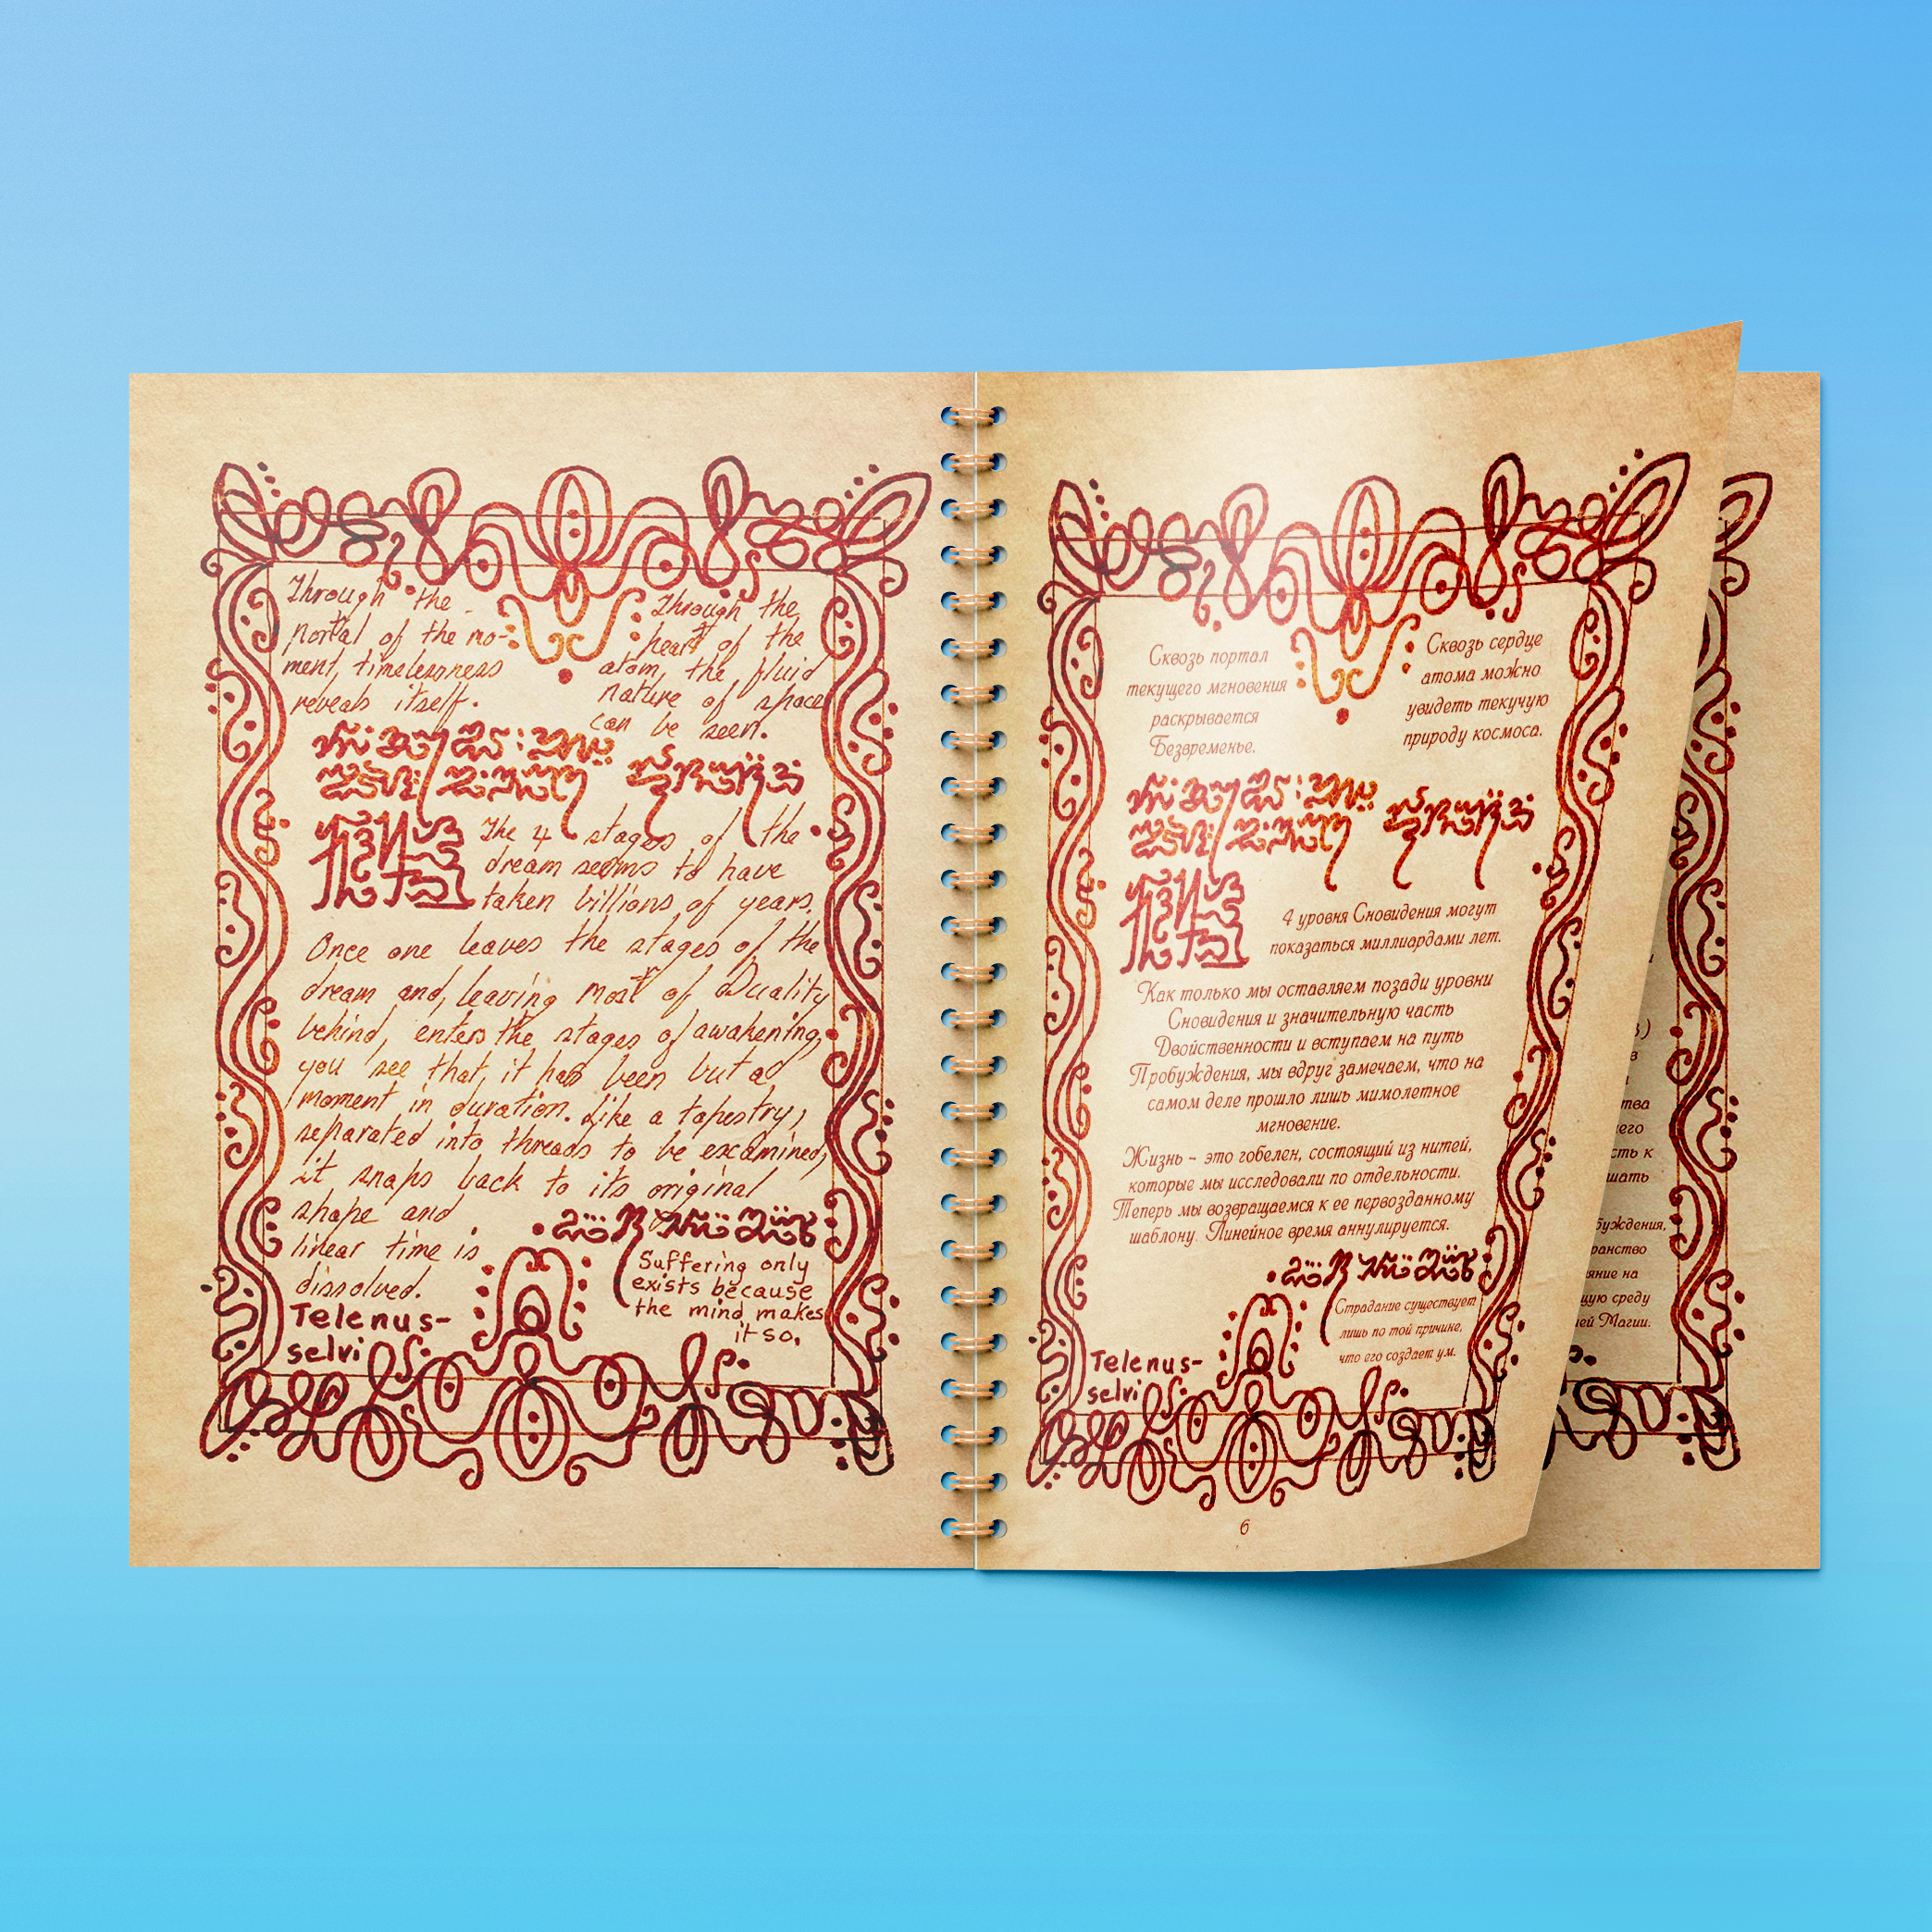 Through the
portal of the mo-
ment, timelessness
reveals itself.
Through the
heart of the
atom, the fluid
nature of space
can be seen.
The 4 stages of the
dream seems to have
taken billions of years.
Once one leaves the stages of the
dream and, leaving most of Duality
behind, enters the stages of awakening,
you see that, it has been but a
moment in duration. Like a tapestry,
separated into threads to be examined,
it snaps back to its original
shape and
linear time is
dissolved.
Telenus-
selvi
Suffering only
exists because
the mind makes
it so.
Сквозь портал
текущего мгновения
раскрывается
Безвременье.
Сквозь сердце
атома можно
увидеть текучую
природу космоса.
4 уровня Сновидения могут
показаться миллиардами лет.
Как только мы оставляем позади уровни
Сновидения и значительную часть
Двойственности и вступаем на путь
Пробуждения, мы вдруг замечаем, что на
самом деле прошло лишь мимолетное
мгновение.
Жизнь – это гобелен, состоящий из нитей,
которые мы исследовали по отдельности.
Теперь мы возвращаемся к ее первозданному
шаблону. Линейное время аннулируется.
Страдание существует
лишь по той причине,
что его создает ум.
Telenus-
selvi
6
сть к
шать
буждения,
ранство
яние на
щую среду
ей Магии.